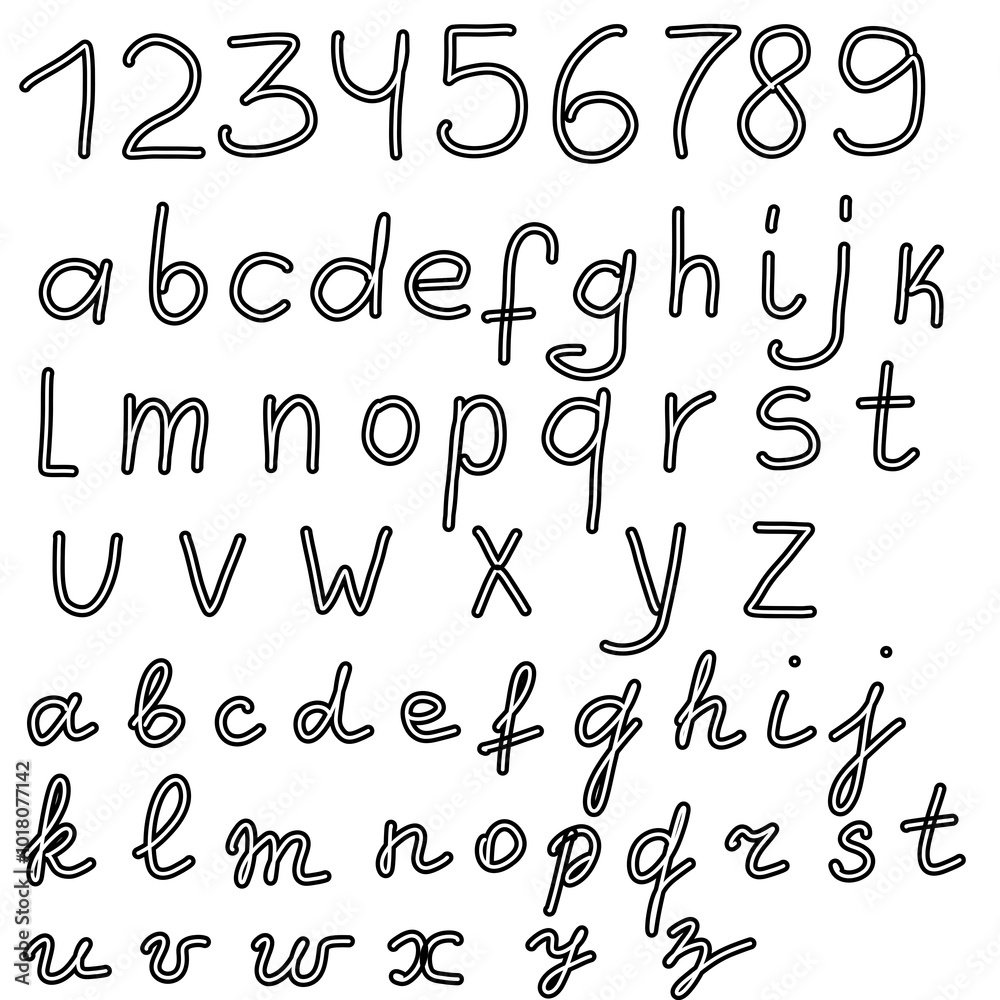 123456789
abcdefghijk
Lmnopqrst
uvwxyz
abcdefghij
klmnopqrst
uvwxyz
Adobe Stock | #1018077142